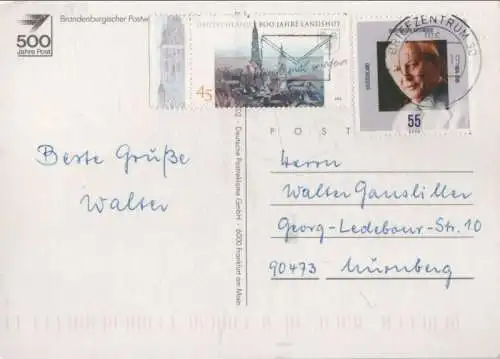 Brandenburgischer Postw
500
Jahre Post
DEUTSCHLAND 800 JAHRE LANDSHUT
45
BRIEFZENTRUM
55
POST
Deutsche Postreklame GmbH · 6000 Frankfurt am Main
Beste Grüße
Walter
Herrn
Walter
Georg-Ledebour-Str. 10
90473 Nürnberg